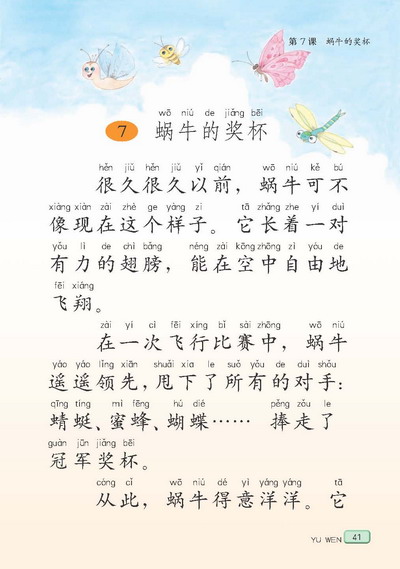 第7课 蜗牛的奖杯
wō niú de jiǎng bēi
7 蜗牛的奖杯
hěn jiǔ hěn jiǔ yǐ qián wō niú kě bú
很久很久以前，蜗牛可不
xiàng xiàn zài zhè ge yàng zi tā zhǎng zhe yí duì
像现在这个样子。它长着一对
yǒu lì de chì bǎng néng zài kōng zhōng zì yóu de
有力的翅膀，能在空中自由地
fēi xiáng
飞翔。
zài yí cì fēi xíng bǐ sài zhōng wō niú
在一次飞行比赛中，蜗牛
yáo yáo lǐng xiān shuǎi xià le suǒ yǒu de duì shǒu
遥遥领先，甩下了所有的对手：
qīng tíng mì fēng hú dié pěng zǒu le
蜻蜓、蜜蜂、蝴蝶…… 捧走了
guàn jūn jiǎng bēi
冠军奖杯。
cóng cǐ wō niú dé yì yáng yáng tā
从此，蜗牛得意洋洋。它
YU WEN 41